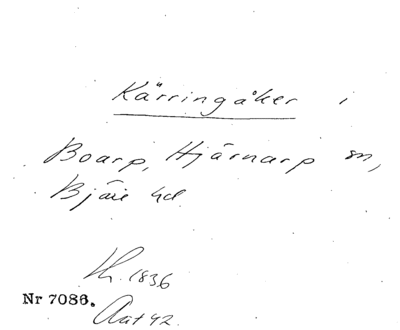 Kärringåker i
Boarp, Hjärnarp sn,
Bjäre hd
Lh. 1836
Nr 7086.
Akt 42